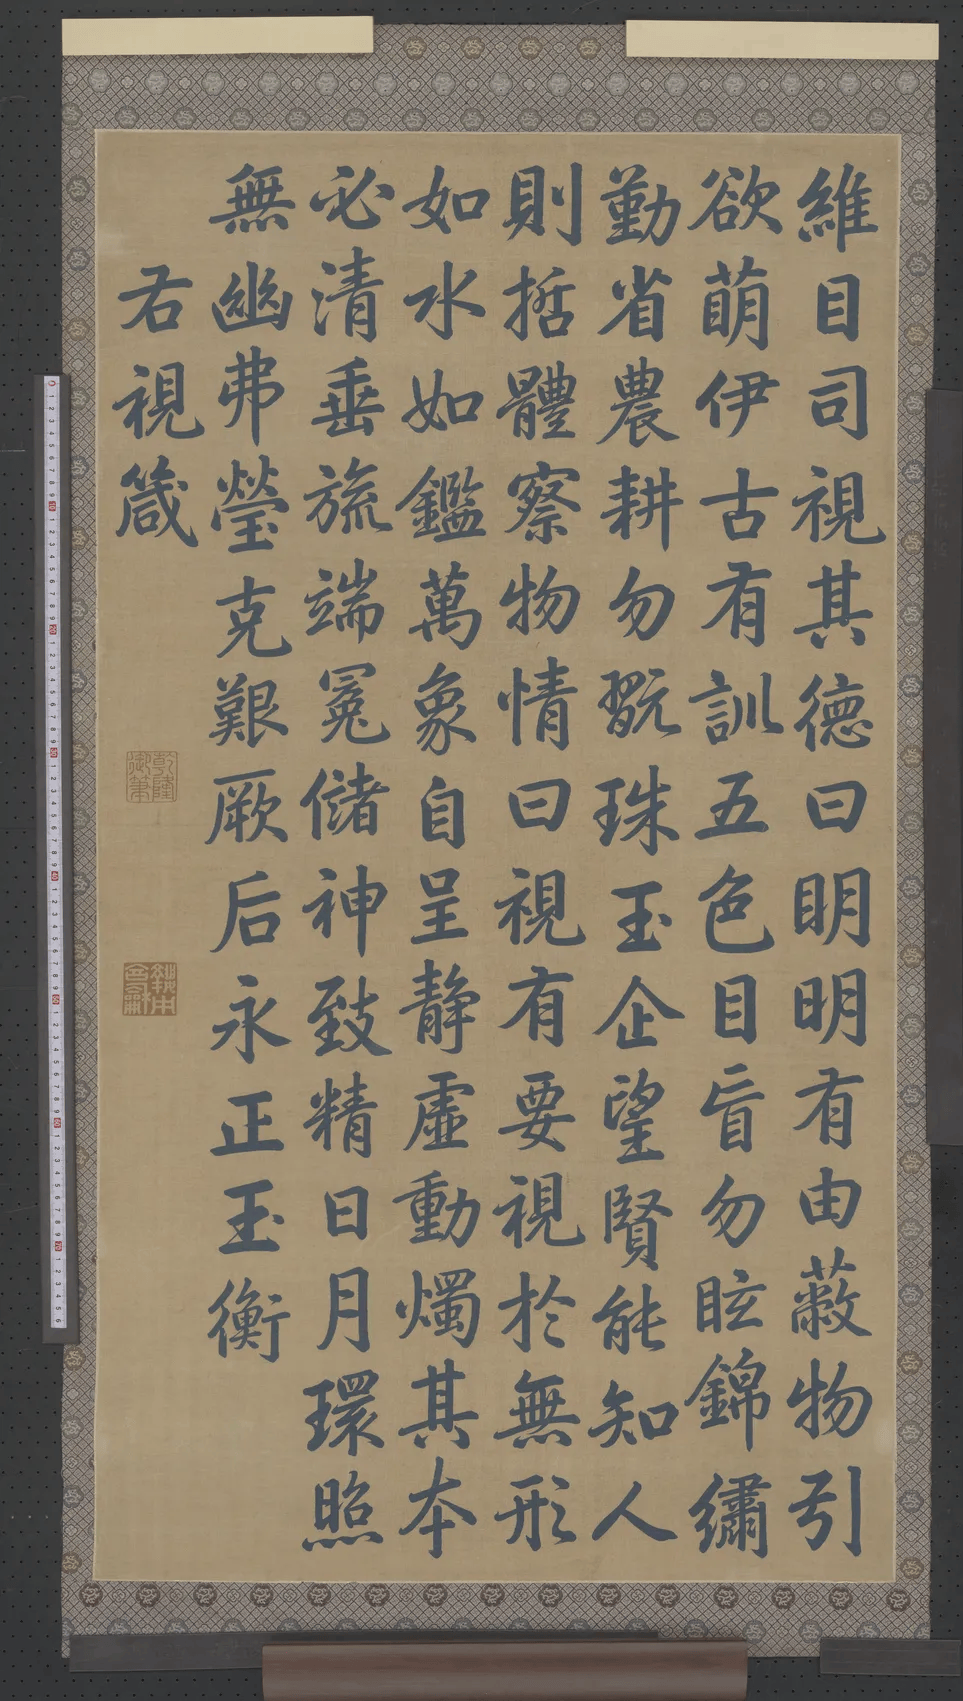 維目司視其德曰明明有由蔽物引
欲萌伊古有訓五色目盲勿眩錦繡
勤省農耕勿翫珠玉企望賢能知人
則哲體察物情曰視有要視於無形
如水如鑑萬象自呈静虛動燭其本
必清垂旒端冕儲神致精日月環照
無幽弗瑩克艱厥后永正玉衡
右視箴
乾隆御筆